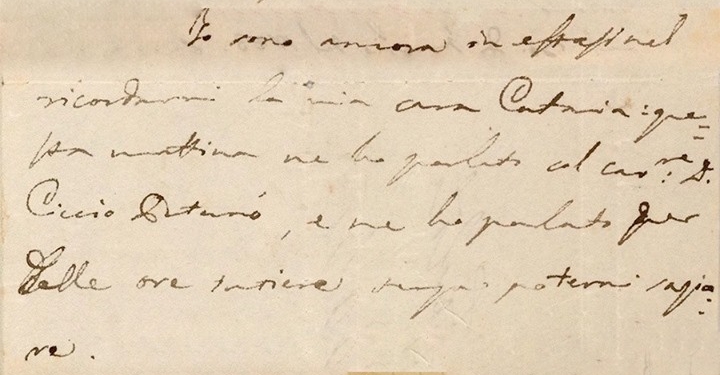 Io sono ancora in estasi nel
ricordarmi la mia cara Catania: que=
sta mattina ne ho parlato col cav.re D.
Ciccio Paternò, e ne ho parlato per
delle ore intiere senza potermi sazia=
re.